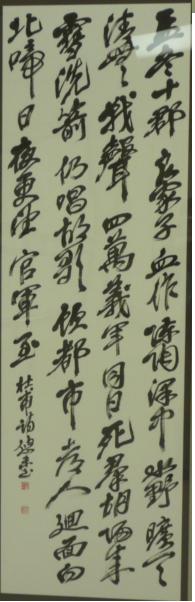 孟冬十郡良家子血作陳陶澤中水野曠天
清無戰聲四萬義軍同日死羣胡歸来
雪洗箭仍唱胡歌飲都市都人廻面向
北啼日夜更望官軍至 杜甫詩